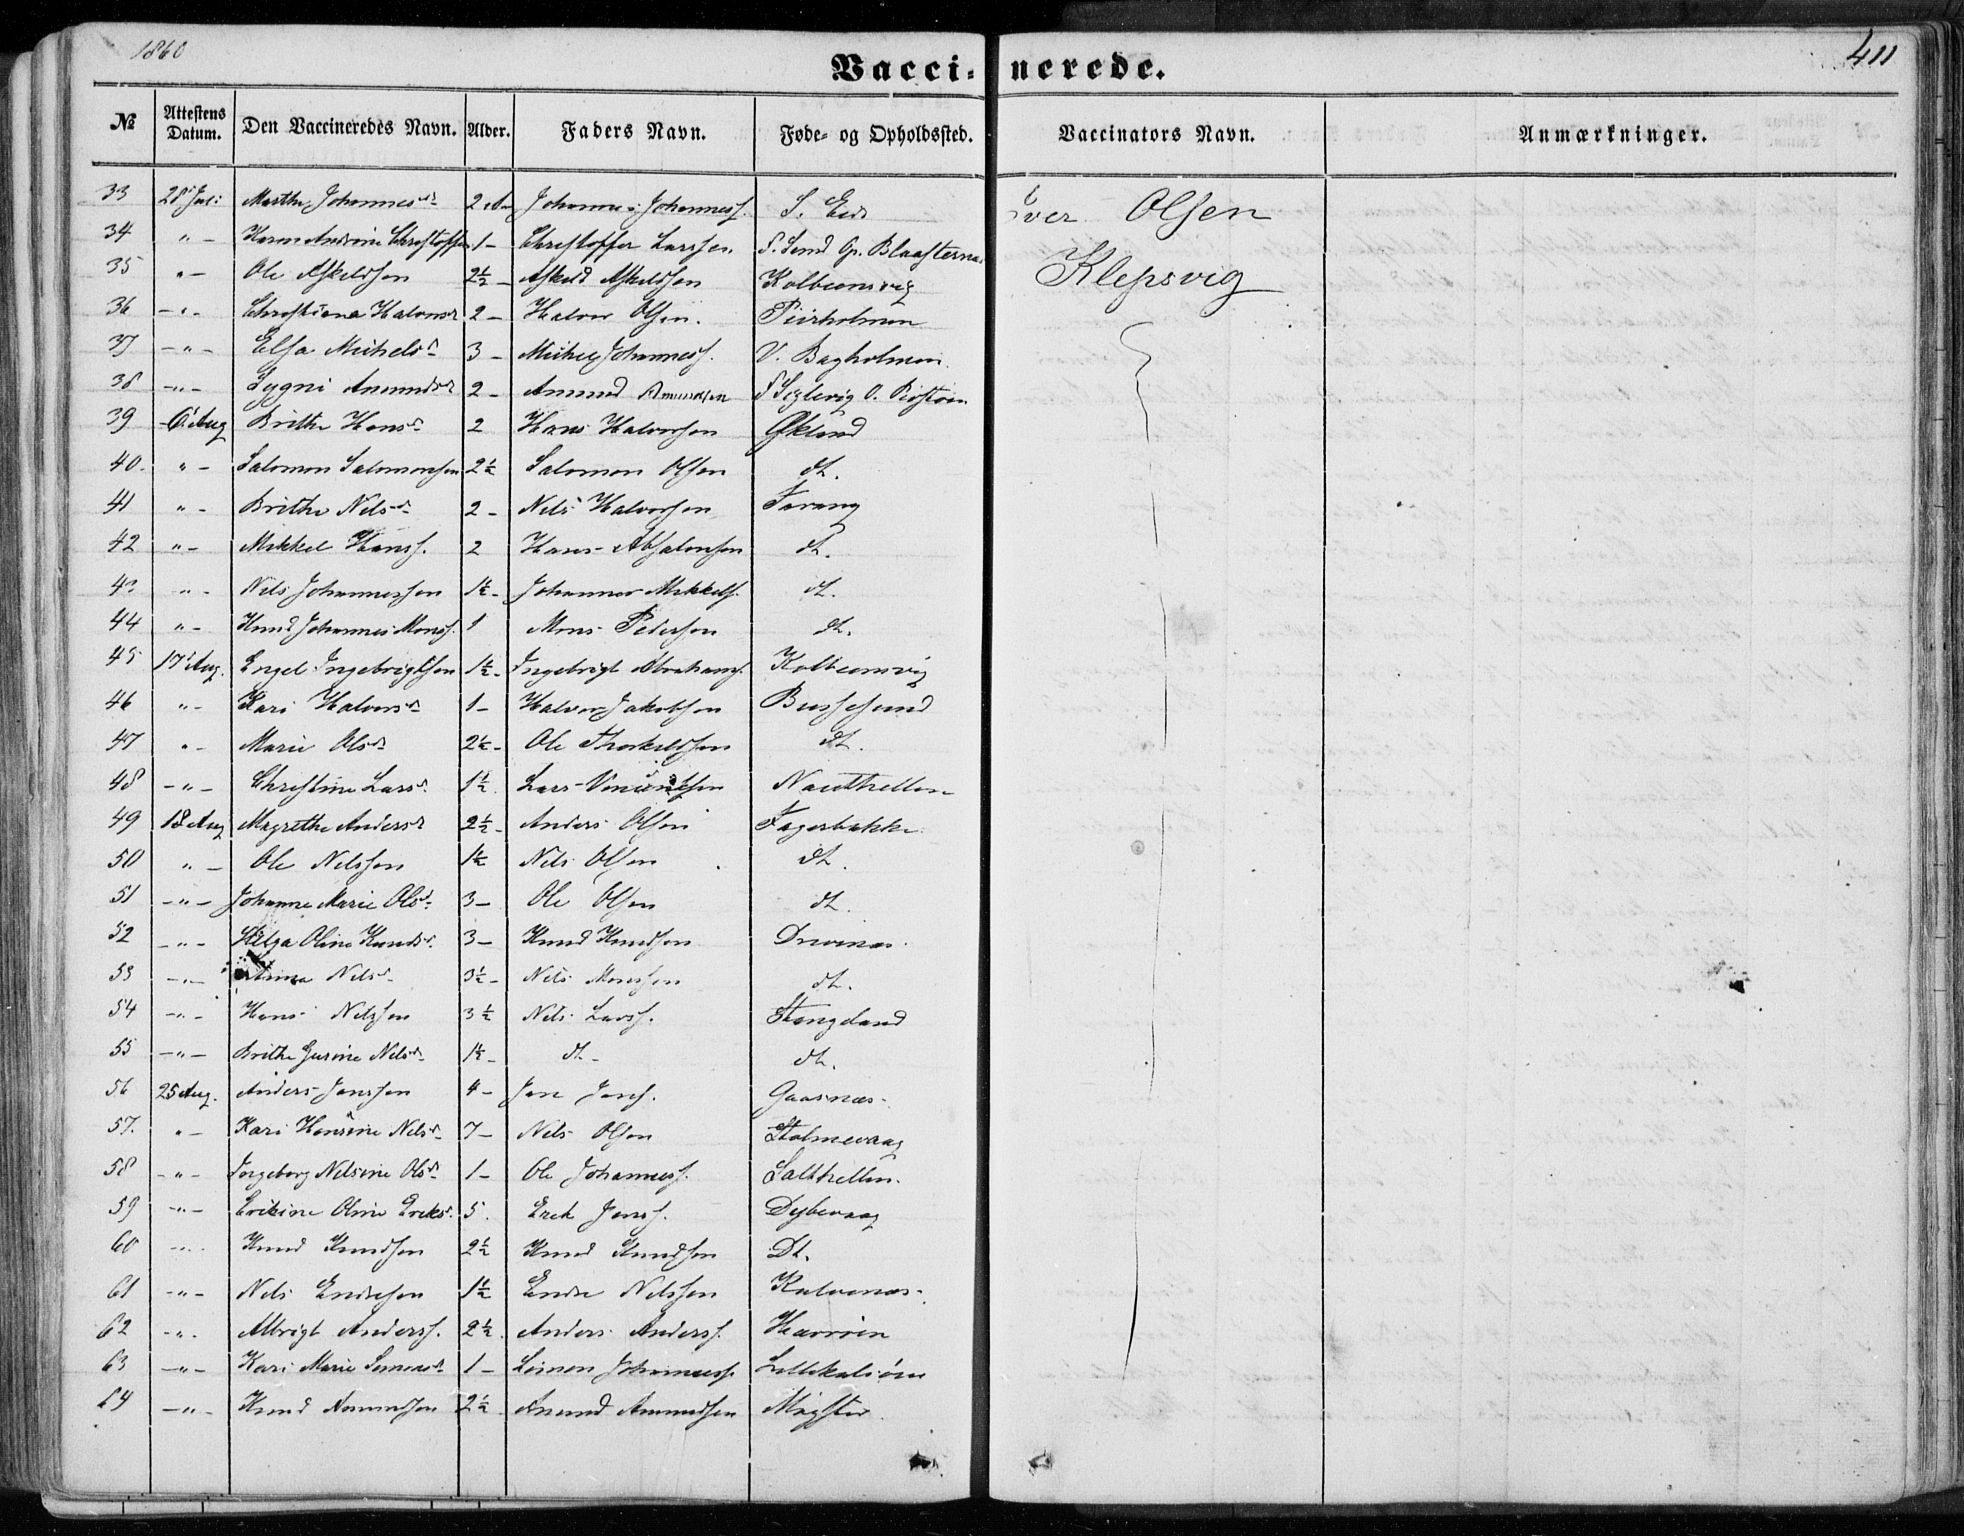 1860
Vaccinerede.
411
№ Attestens Datum. Den Vaccineredes Navn. Alder. Faders Navn. Føde- og Opholdssted. Vaccinators Navn. Anmærkninger.
33 28 Jul: Marthe Johannesdr 2 Johannes Johanness. S. Eide Olsen
34 " - Christoff 1 - Christoffer Larssen
35 " - Ole Askeldsen 2½ - Askeld Askeldsen Kolbeensvig Klepsvig
36 - " - Christiana Halvorsdr 2 - Halvor Olsen. Piirholmen
37 - " - Elsa Michelsdr 3 - Michel Johanness. V. Bagholmen
38 - " - Amundsdr 2 - Amund Amundsen
39 6 Aug Brithe Hansdr 2 Hans Halvorsen Økland
40. " - Salomon Salomonsen 2½ Salomon Olsen dt.
41 " - Brithe Nelsdr 2 - Nels Halvorsen Tarang
42 " - Mikkel Hanss. 2 Hans Absalonsen dt.
43 " - Nils Johannessen 1½ - Johannes Mikkels. dt.
44 " - Knud Johannes Monss. 1 Mons Petersen dt.
45 17 Aug. Engel Ingebrigtsen 1½ - Ingebrigt Abrahams. Kolbeensvig
46 " - Kari Halvorsdr 1 - Halvor Jakobsen Bussesund
47 " - Marie Olsdr 2½ - Ole Thorkeldsen dt.
48 - " - Christine Larsdr 1½ Lars Nauthellen
49 18 Aug Magrethe Andersdr 2½ - Anders Olsen Fagerbakke
50 " - Ole Nelssen 1½ Nels Olsen dt.
51 - " - Johanne Marie Olsdr 3 - Ole Olsen dt.
52 - " - Helga Oline Knudsdr 3 - Knud Knudsen Drivenæs
53 - " - Nelsdr 3½ - Nels Monssen dt.
54 - " - Hans Nelssen 3½ Nels Larss. Stangeland
55 - " - Brithe Gurine Nelsdr 1½ - dt - dt.
56 25 Aug. Anders Janssen 4 - Jan Jans. Gaasnæs
57. " - Kari Hansine Nelsdr 7 - Nels Olsen Stolmevaag
58 - " - Ingeborg Nelsine Olsdr 1 - Ole Johanness. Salthellen.
59 - " - Erikine Oline Eriksdr 5. Erek Janss. Dybevaag
60 - " - Knud Knudsen 2½ Knud Knudsen Dt.
61 - " - Nels Endresen 1½ Endre Nelssen Kalvenæs
62 - " - Albrigt Anderss. 2½ Anders Anderss. Havrøen
63 - " - Kari Marie Simonsdr 1 - Simon Johanness. Lillekalsøen
64 - " - Knud Amundsen 2½ Amund Amundsen Møgster